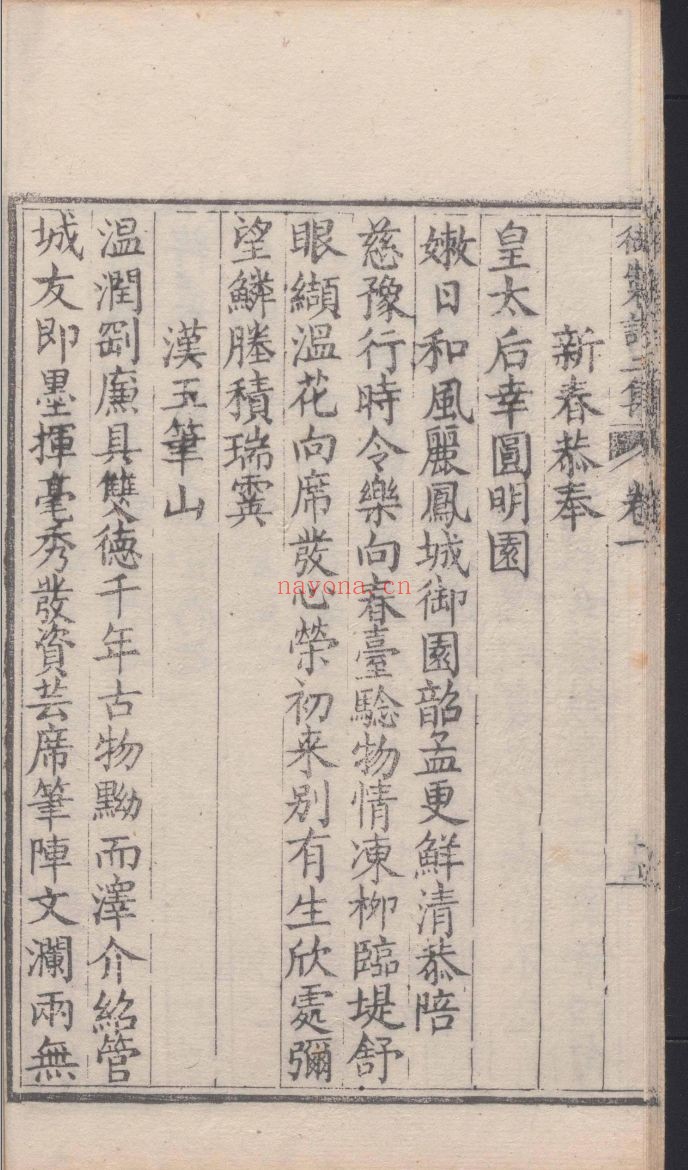 御製詩二集 卷一
新春恭奉
皇太后幸圓明園
嫩日和風麗鳳城御園韶孟更鮮清恭陪
慈豫行時令樂向春臺驗物情凍栁臨堤舒
眼纈溫花向席發心榮初来別有生欣處彌
望鱗塍積瑞霙
漢玉筆山
溫潤劌廉具雙德千年古物黝而澤介紹管
城友即墨揮毫秀發資芸席筆陣文瀾兩無
nayona.cn